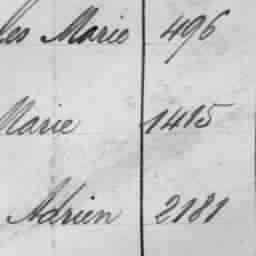 les Marie 496
Marie 1415
Adrien 2181